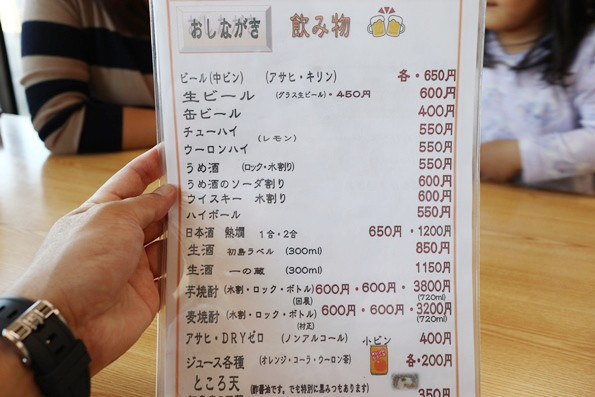 おしながき 飲み物
ビール(中ビン) (アサヒ・キリン) 各・650円
生ビール (グラス生ビール)・450円 600円
缶ビール 400円
チューハイ (レモン) 550円
ウーロンハイ 550円
うめ酒 (ロック・水割り) 550円
うめ酒のソーダ割り 600円
ウイスキー 水割り 600円
ハイボール 550円
日本酒 熱燗 1合・2合 650円・1200円
生酒 初島ラベル (300ml) 850円
生酒 一の蔵 (300ml) 1150円
芋焼酎 (水割・ロック・ボトル) 600円・600円・3800円
(720ml)
麦焼酎 (水割・ロック・ボトル) 600円・600円・3200円
(720ml)
アサヒ・DRYゼロ (ノンアルコール) 小ビン 400円
ジュース各種 (オレンジ・コーラ・ウーロン茶) 各・200円
ところ天 (酢醤油です。でも特別に黒みつもあります) 350円